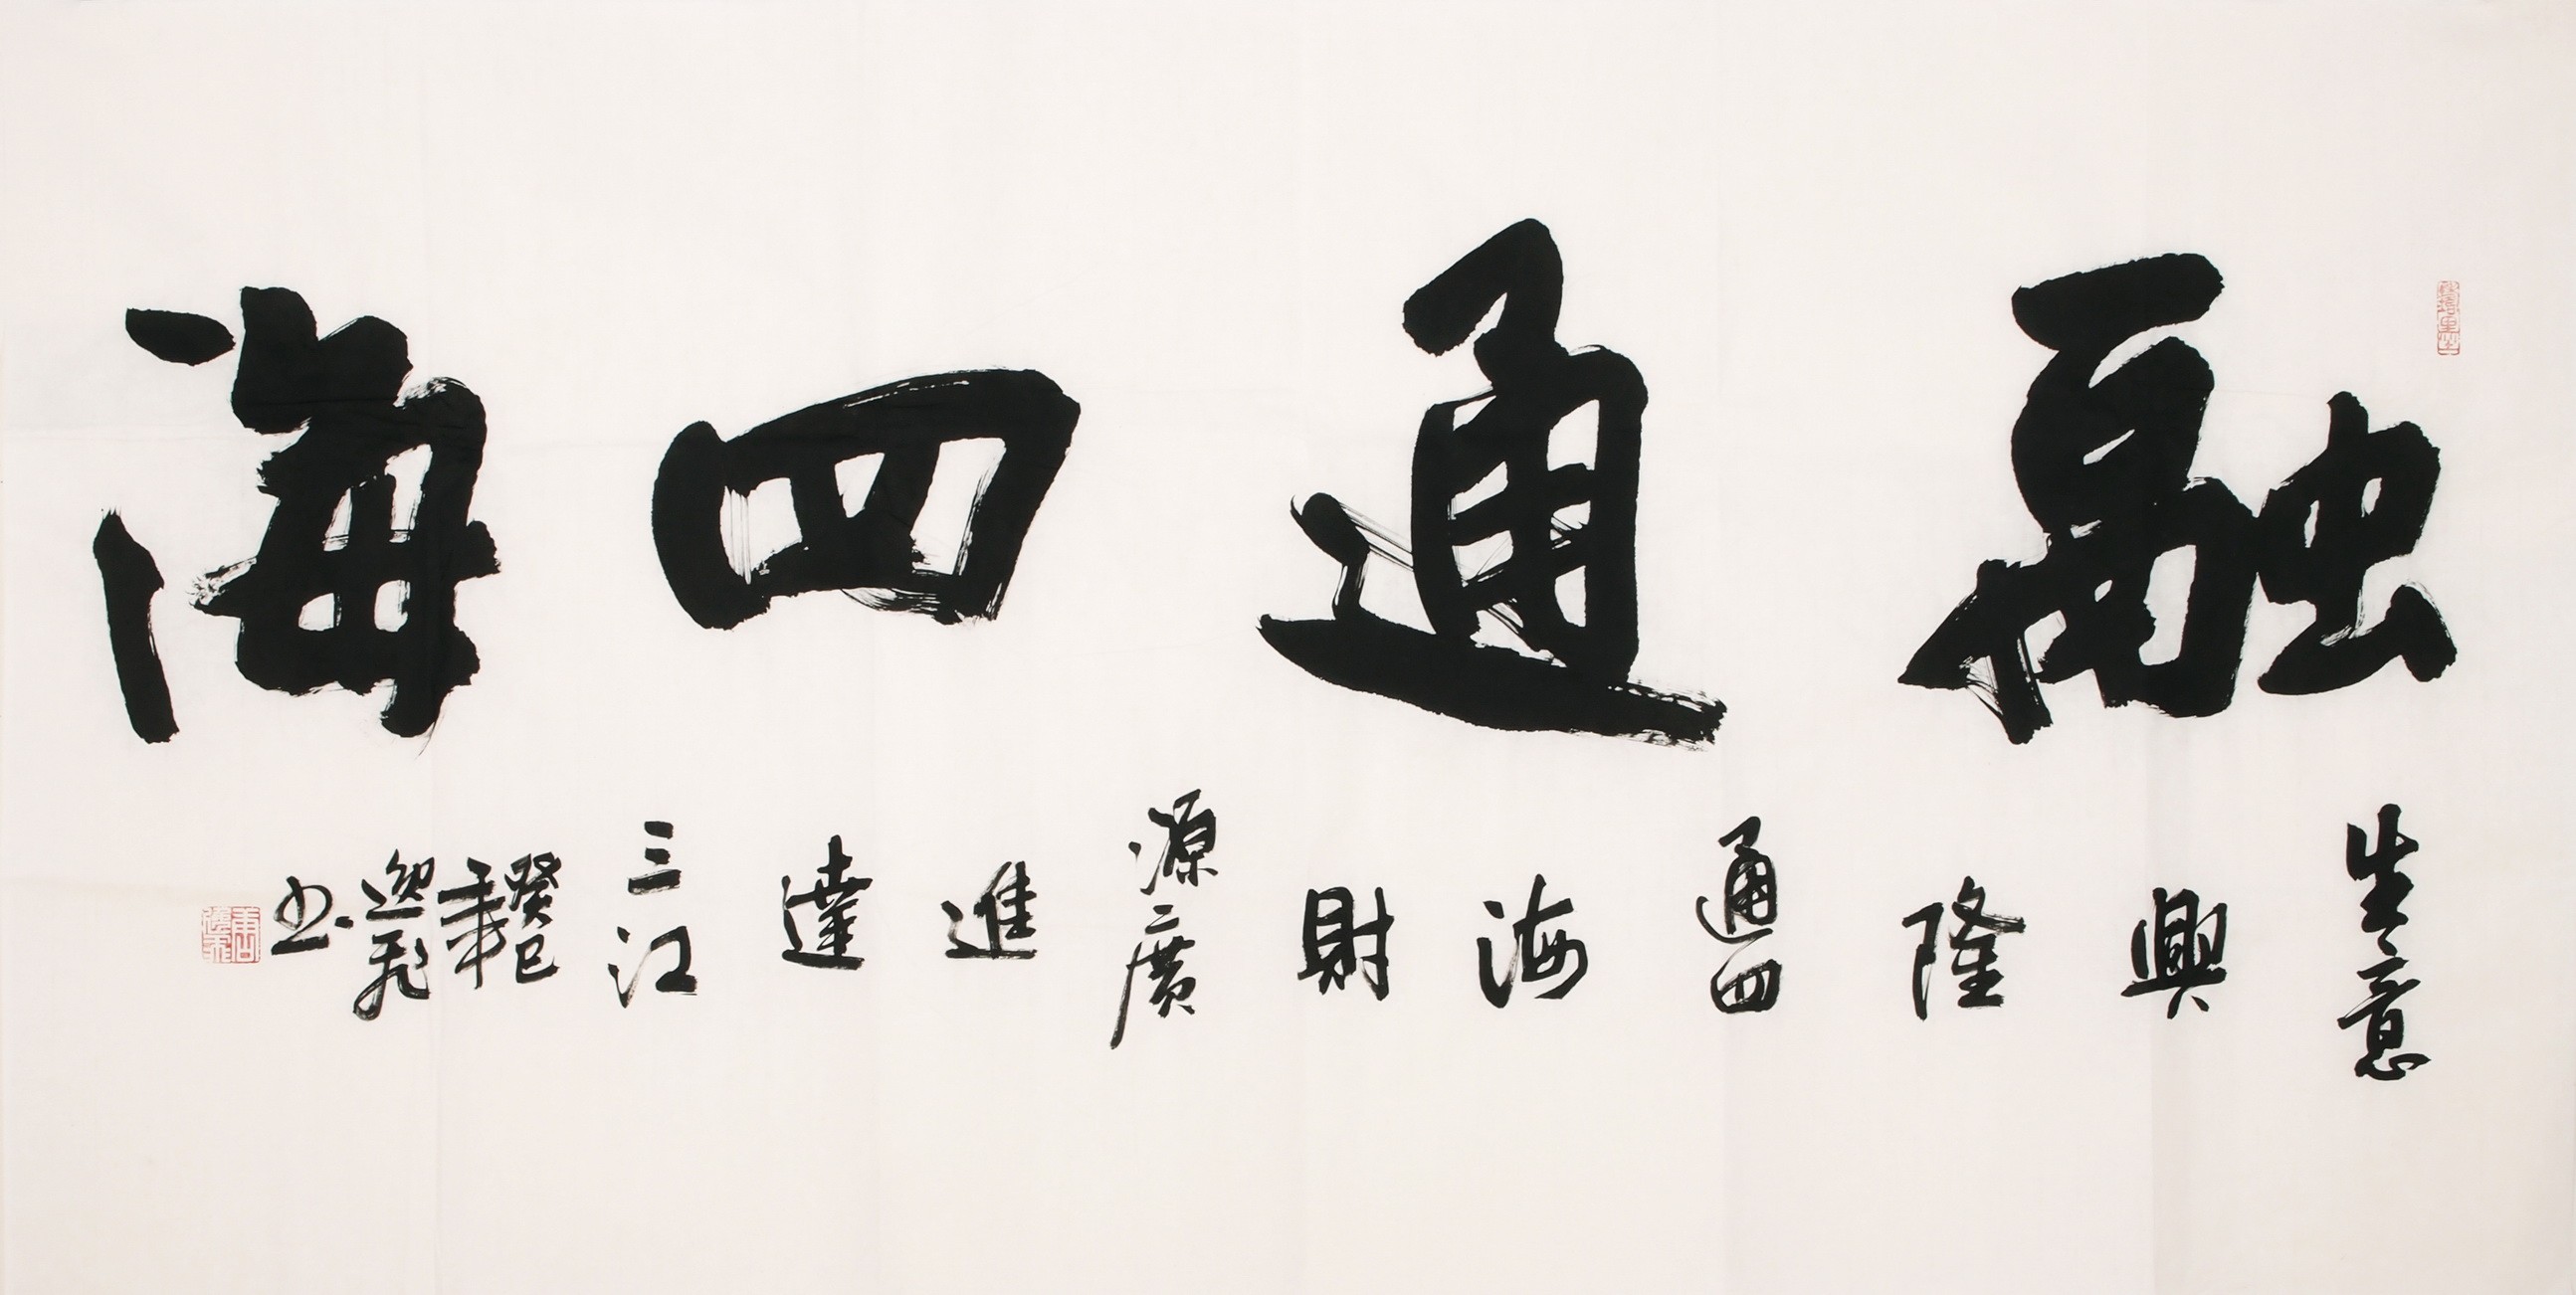 融通四海
生意興隆通四海財源廣進達三江
癸巳年秋
逸飛书